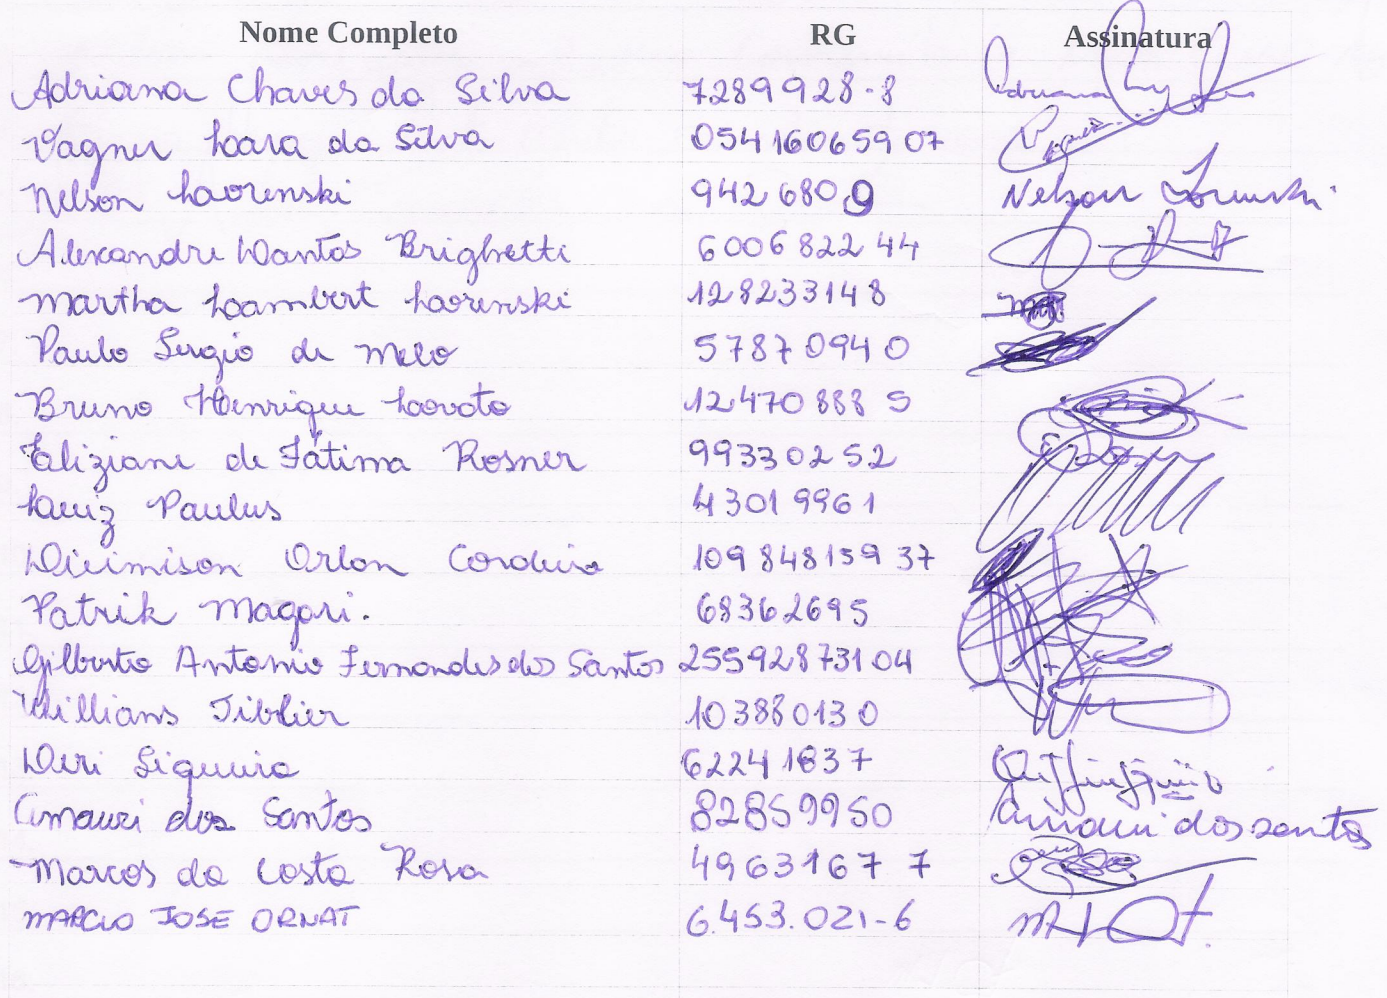 Nome Completo RG Assinatura
Adriana Chaves da Silva 7289928-8
Vagner Loara da Silva 05416065907
Nelson Lavorenski 9426809 Nelson
Alexandre Dantas Brighetti 600682244
Martha Lambert Lavorenski 128233148
Paulo Sergio de Melo 57870940
Bruno Henrique Lovato 124708885
Eliziani de Fátima Rosner 99330252
Luiz Paulus 43019961
Orlan Cordeiro 10984815937
Patrik Magari. 68362695
Gilberto Antonio Fernandes dos Santos 25592873104
Willians Tiblier 103880130
Deri Siqueira 62241837
Amauri dos Santos 82859950 Amauri dos santos
Marcos da Costa Rosa 49631677
MARCIO JOSE ORNAT 6.453.021-6